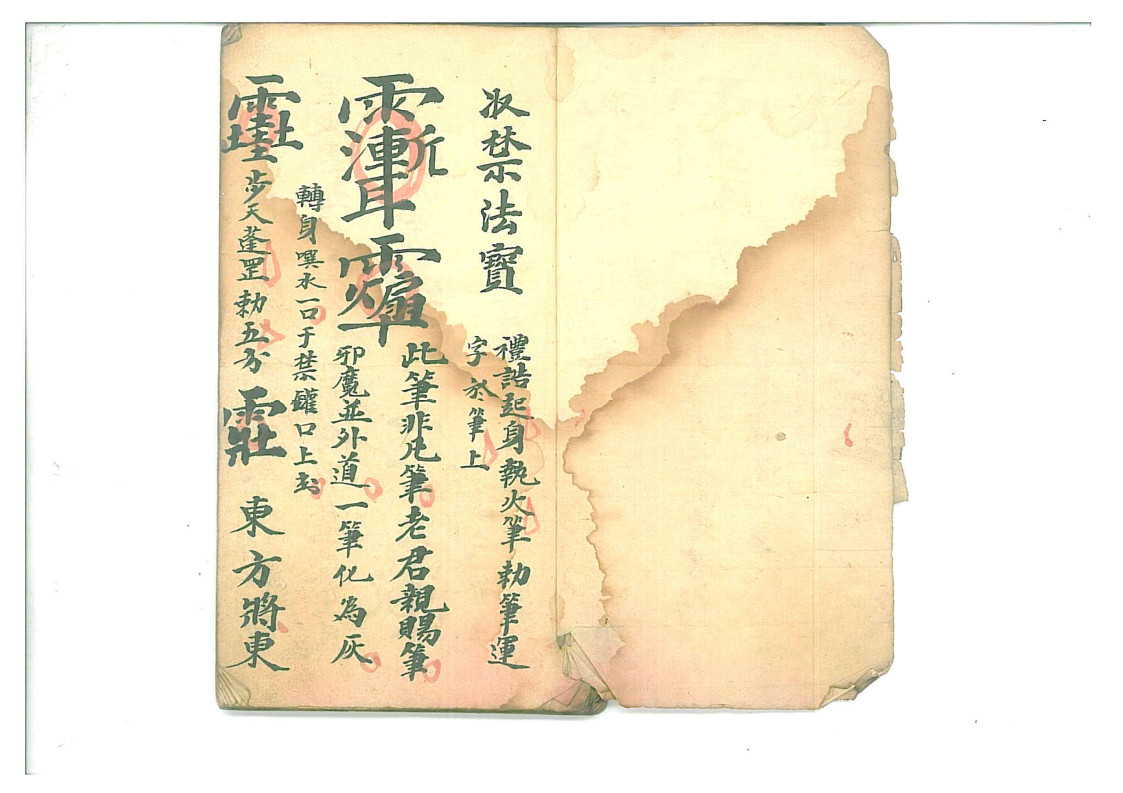 収禁法寶
禮誥起身執火筆 勅筆運
字於筆上
此筆非凡筆老君親賜筆
邪魔並外道一筆化為灰
轉身噀水一口于禁罐口上書
步天蓬罡勅五方
東方將東